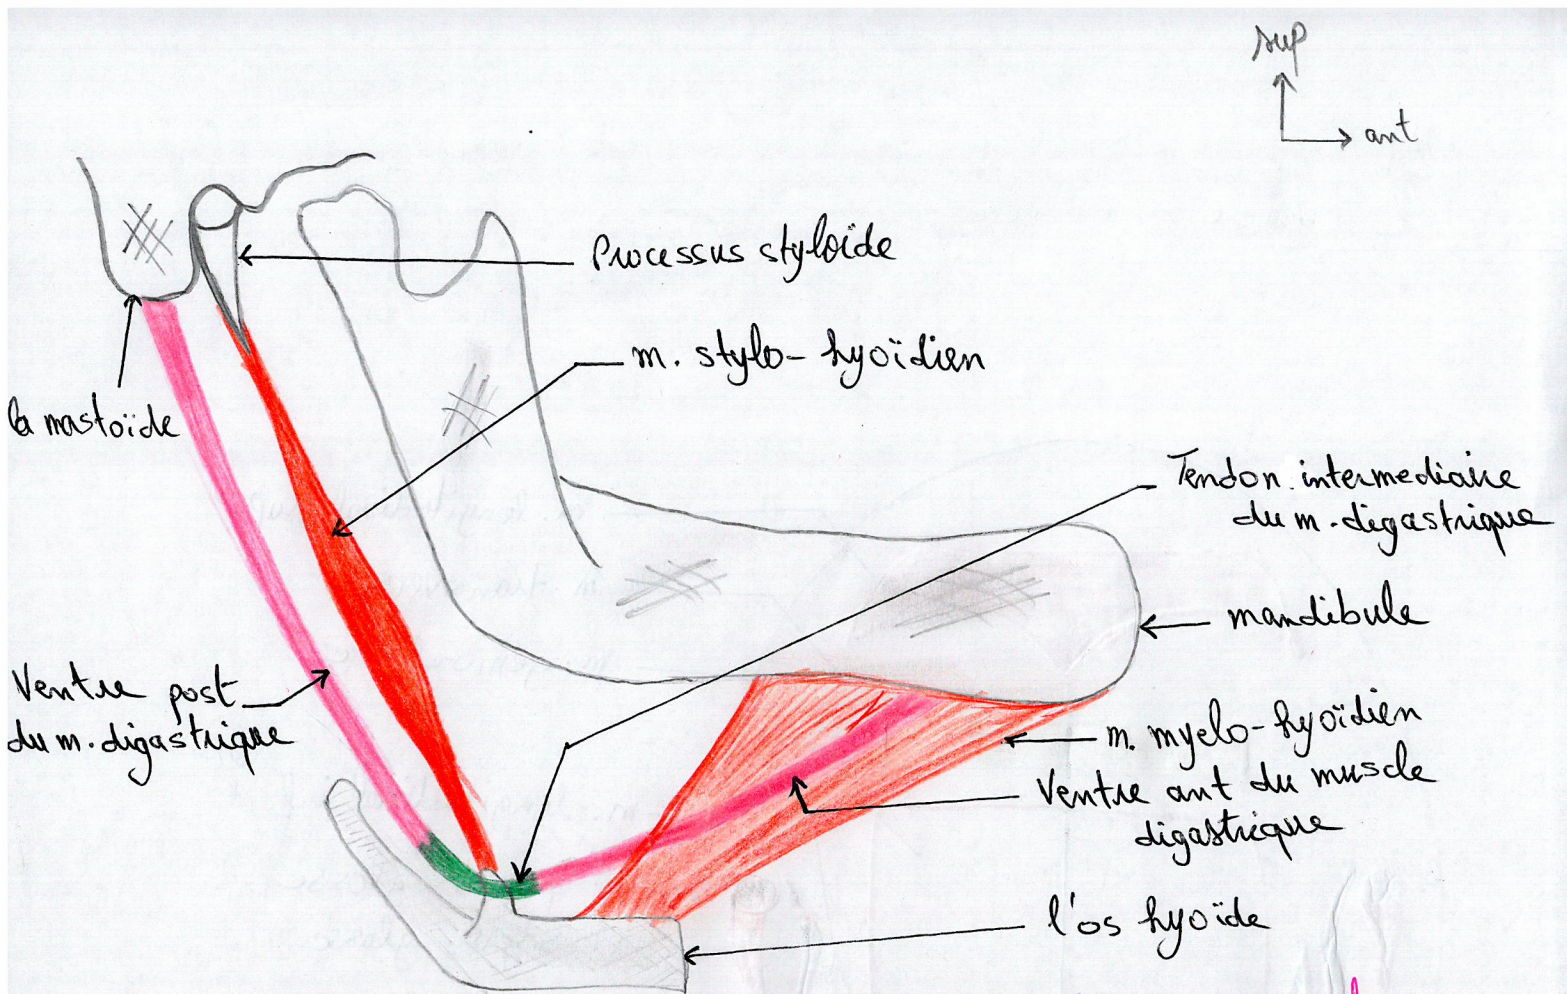 sup
ant
Processus styloïde
m. stylo-hyoïdien
la mastoïde
Tendon intermediaire
du m. digastrique
mandibule
Ventre post
du m. digastrique
m. myelo-hyoïdien
Ventre ant du muscle
digastrique
l'os hyoïde